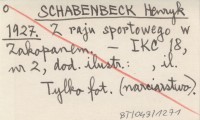 o
SCHABENBECK Henryk
1927. Z raju sportowego w
Zakopanem. — IKC 18,
nr 2, dod. ilustr.: , il.
Tylko fot. (narciarstwo).
BJ/043/1271